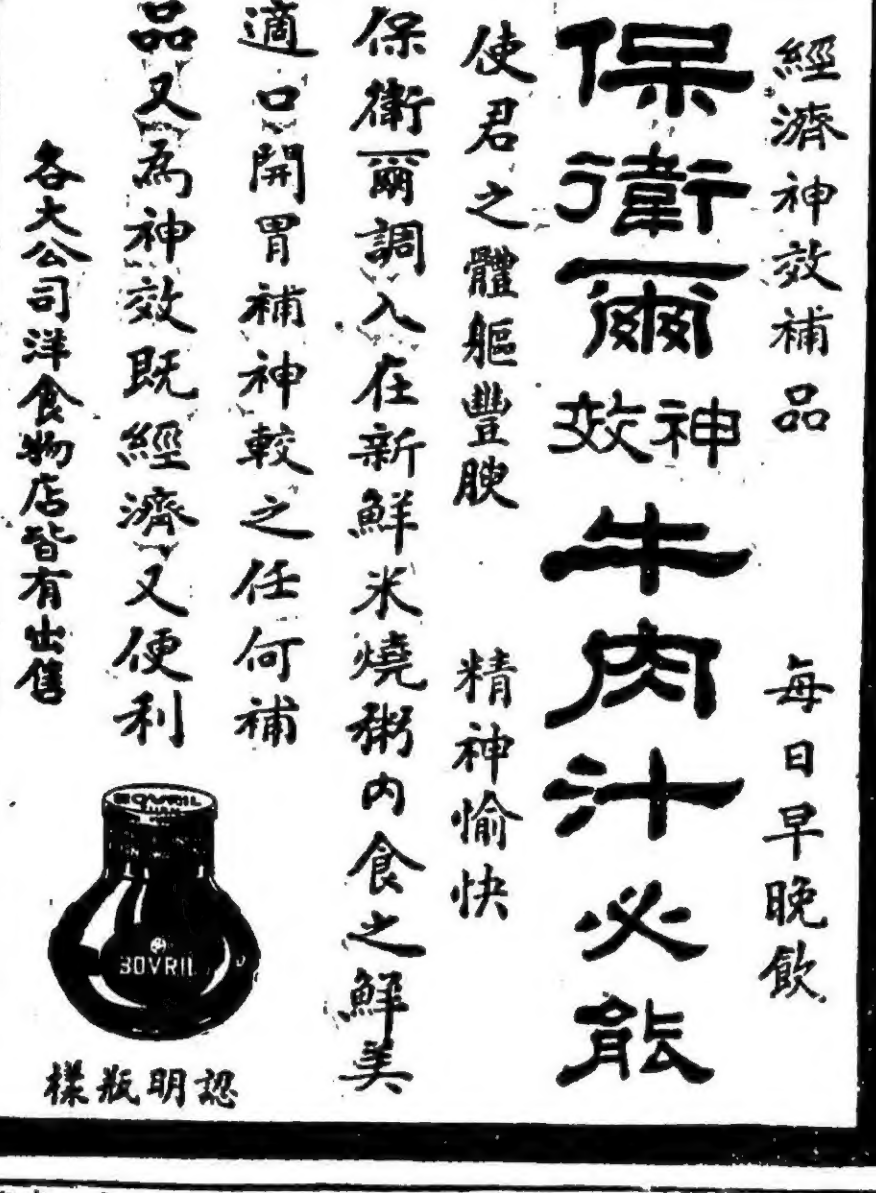 經濟神效補品　每日早晚飲
保衛爾神效牛肉汁必能
使君之體軀豐腴　精神愉快
保衛爾調入在新鮮米燒粥內食之鮮美
適口開胃補神較之任何補
品又為神效既經濟又便利
各大公司洋食物店皆有出售
BOVRIL
BOVRIL
認明瓶樣